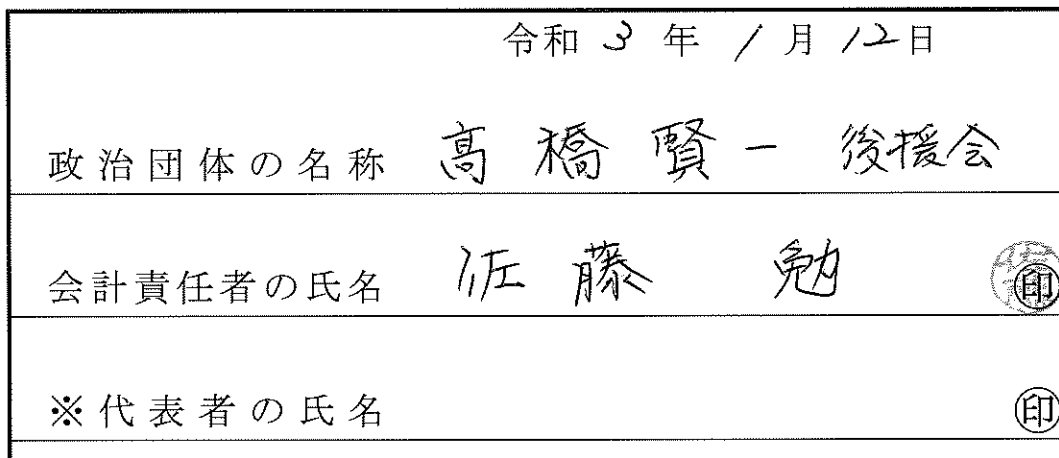 令和 3 年 1 月 12日
政治団体の名称 髙橋 賢一 後援会
会計責任者の氏名 佐藤 勉 ㊞
※代表者の氏名 ㊞